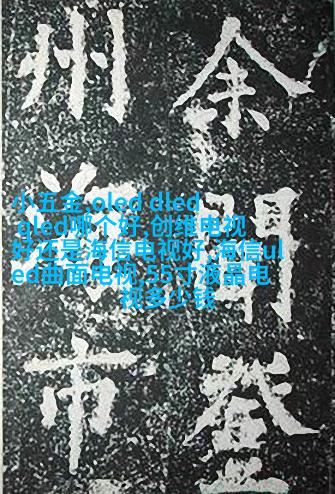 余聞登
州市
小五金,oled dled
qled哪个好,创维电视
好还是海信电视好,海信ul
ed曲面电视,55寸液晶电
视多少钱